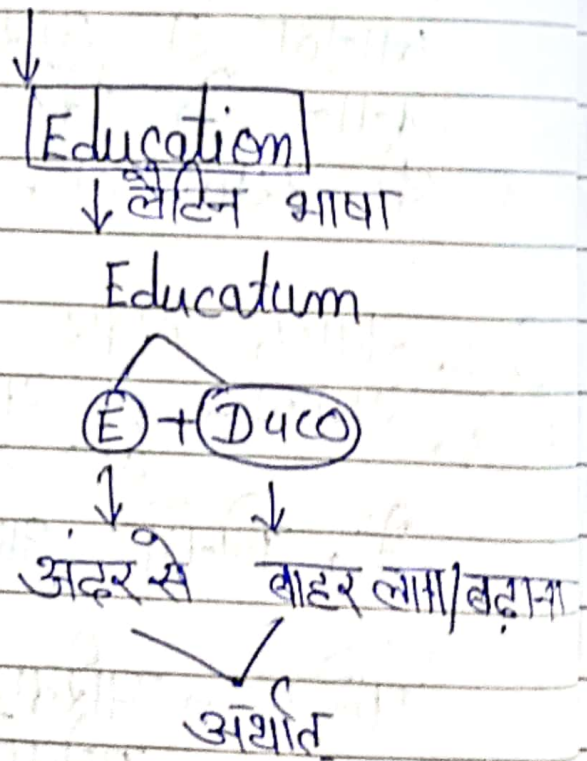 Education
लैटिन भाषा
Educatum
E + Duco
अंदर से बाहर लाना/बढ़ाना
अर्थात